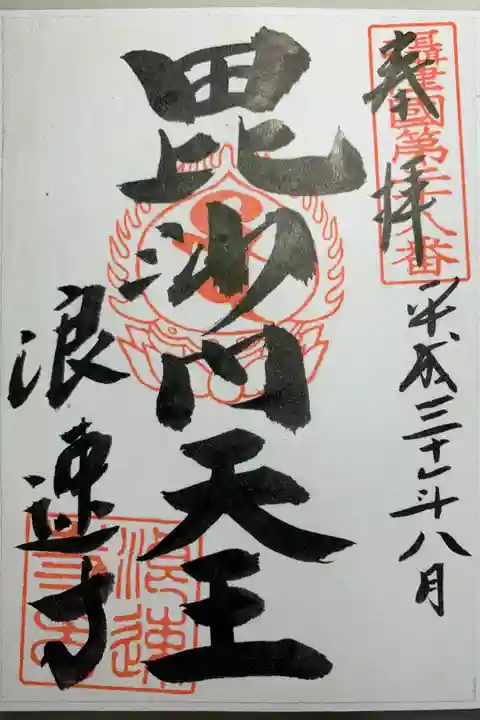 奉拝
攝津國第二八番
平成三十年八月
毘沙門天王
浪速寺